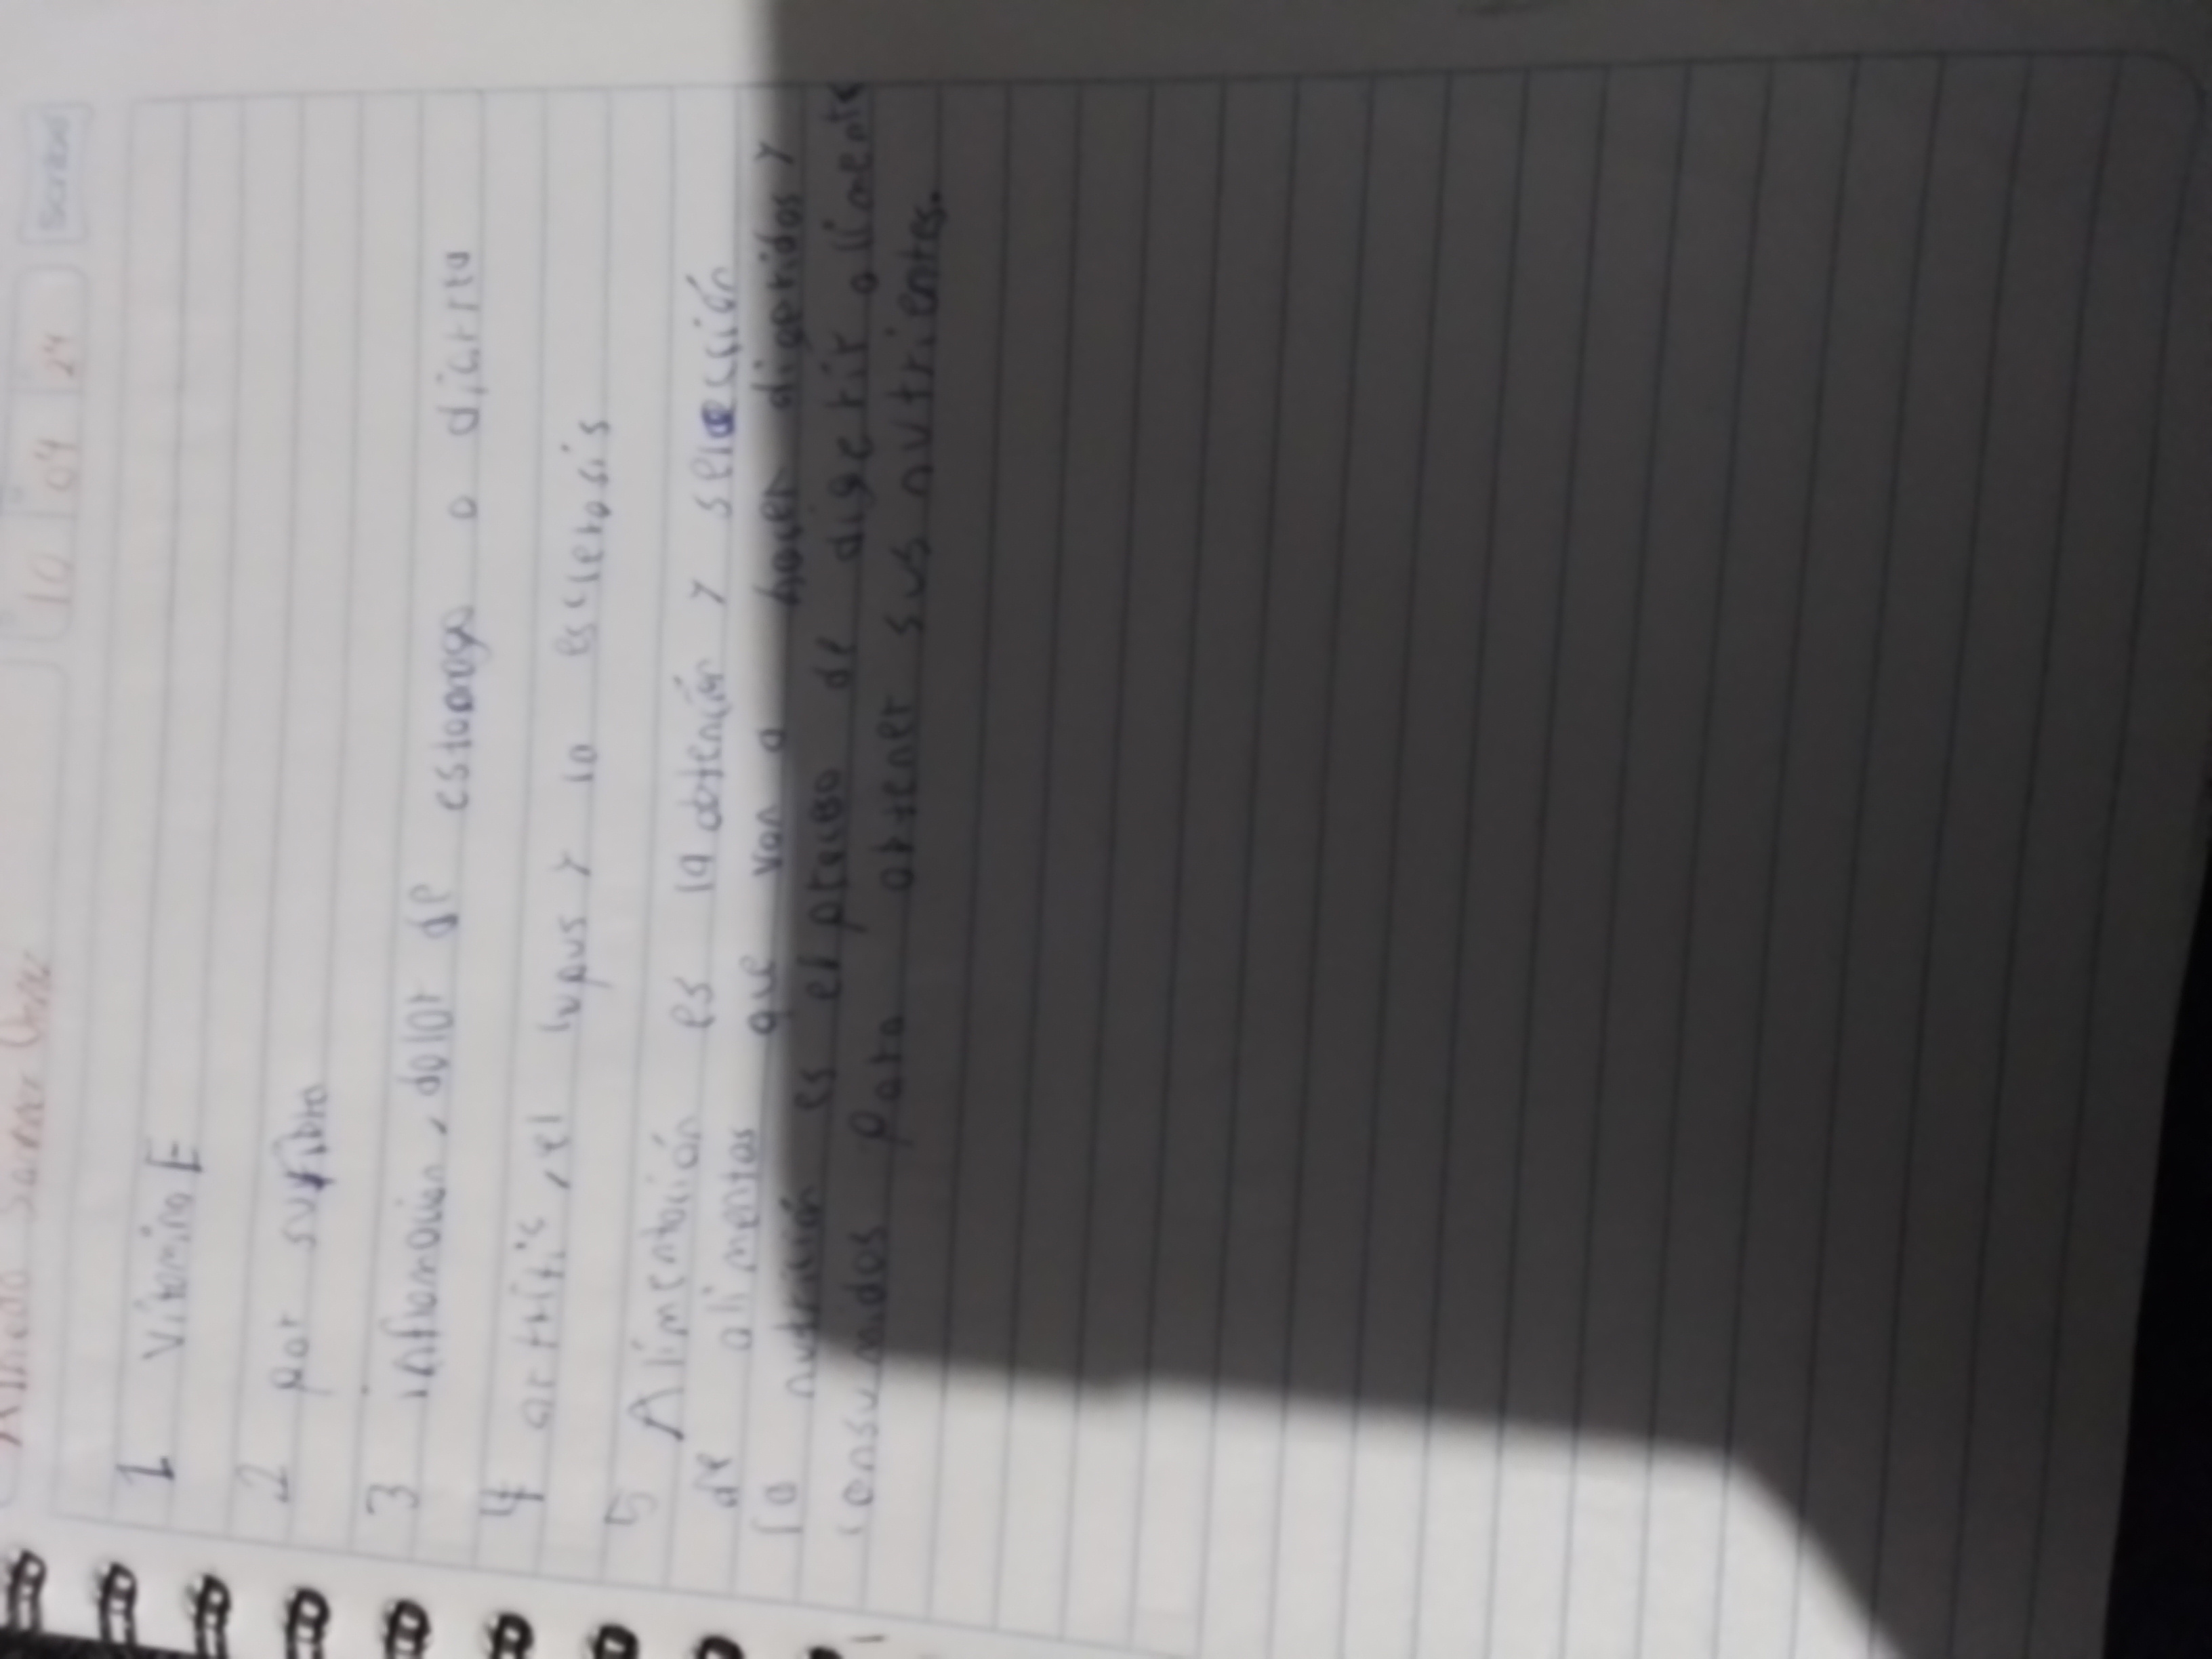 10 04 24
1 Vitamina E
2 por su fibra
3 inflamacion, dolor de estomago o diarrea
4 artritis, el lupus y la esclerosis
5 Alimentación es la obtención y selección
de alimentos que van a hacer digeridos y
la nutrición es el proceso de digerir alimentos
consumidos para obtener sus nutrientes.